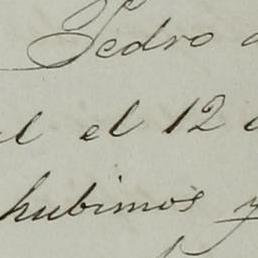 Pedro
el 12
hubimos y